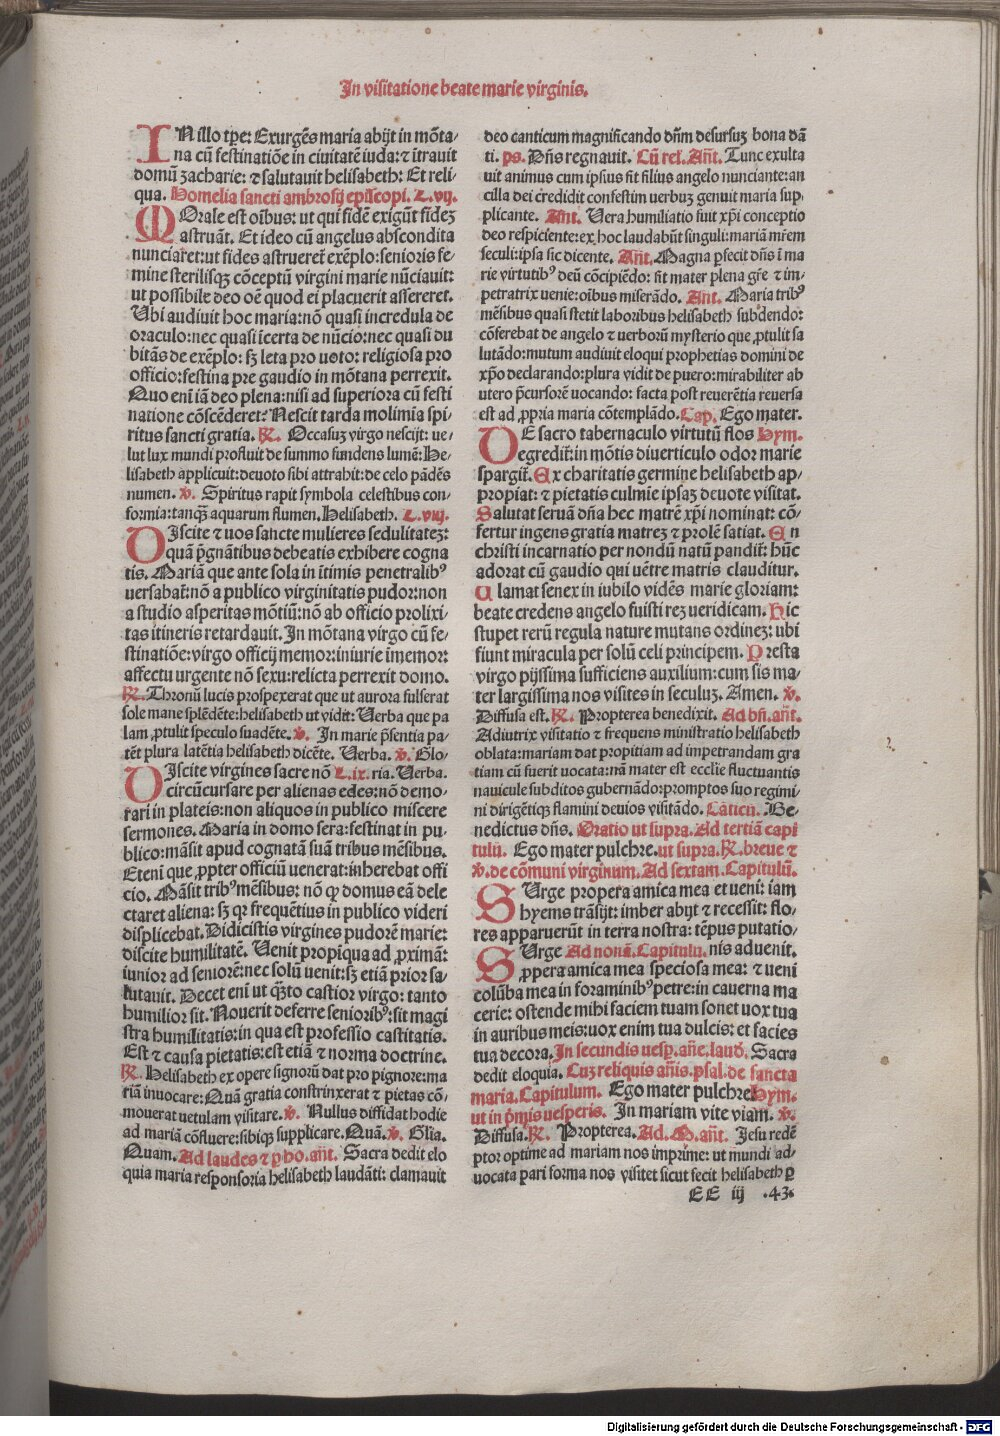 In visitatione beate marie virginis.
IN illo tp̄e: Exurgēs maria abijt in mōta-
na cū festinatiōe in ciuitatē iuda: ⁊ ītrauit
domū zacharie: ⁊ salutauit helisabeth: Et reli-
qua. Homelia sancti ambrosij ep̄iscopi. L. vij.
MOrale est oībus: ut qui fidē exigūt fideꝫ
astruāt. Et ideo cū angelus abscondita
nunciaret: ut fides astrueret̄ exēplo: senioris fe-
mine sterilisqꝫ cōceptū virgini marie nūciauit:
ut possibile deo oē quod ei placuerit assereret.
Ubi audiuit hoc maria: nō quasi incredula de
oraculo: nec quasi īcerta de nūcio: nec quasi du
bitās de exēplo: sꝫ leta pro uoto: religiosa pro
officio: festina pre gaudio in mōtana perrexit.
Quo enī iā deo plena: nisi ad superiora cū festi
natione cōscēderet? Nescit tarda molimia spi-
ritus sancti gratia. ℟. Occasuꝫ virgo nescijt: ue-
lut lux mundi profluit de summo fundens lumē: He-
lisabeth applicuit: deuoto sibi attrahit: de celo pādēs
numen. ℣. Spiritus rapit symbola celestibus con-
formia: tanqꝫ aquarum flumen. Helisabeth. L. viij.
DIscite ⁊ uos sancte mulieres sedulitateꝫ:
quā p̄gnātibus debeatis exhibere cogna
tis. Mariā que ante sola in ītimis penetralibꝰ
uersabat̄: nō a publico virginitatis pudor: non
a studio asperitas mōtiū: nō ab officio prolixi-
tas itineris retardauit. In mōtana virgo cū fe-
stinatiōe: virgo officij memor: iniurie īmemor:
affectu urgente nō sexu: relicta perrexit domo.
℟. Thronū lucis prospexerat que ut aurora fulserat
sole mane splēdēte: helisabeth ut vidit: Uerba que pa
lam ꝓtulit speculo suadēte. ℣. In marie p̄sentia pa-
tēt plura latētia helisabeth dicēte. Uerba. ℣. Glo-
DIscite virgines sacre nō L. ix. ria. Uerba.
circūcursare per alienas edes: nō demo-
rari in plateis: non aliquos in publico miscere
sermones. Maria in domo sera: festinat in pu-
blico: māsit apud cognatā suā tribus mēsibus.
Etenī que ꝓpter officiū uenerat: inherebat offi
cio. Māsit tribꝰ mēsibus: nō ꝙ domus eā dele
ctaret aliena: sꝫ qꝛ frequētius in publico videri
displicebat. Didicistis virgines pudorē marie:
discite humilitatē. Uenit propiqua ad ꝓximā:
iunior ad seniorē: nec solū uenit: sꝫ etiā prior sa-
lutauit. Decet enī ut q̄ꝫto castior virgo: tanto
humilior sit. Nouerit deferre senioribꝰ: sit magi
stra humilitatis: in qua est professio castitatis.
Est ⁊ causa pietatis: est etiā ⁊ norma doctrine.
℟. Helisabeth ex opere signorū dat pro pignore: ma
riā inuocare: Quā gratia constrinxerat ⁊ pietas cō-
mouerat uetulam visitare. ℣. Nullus diffidat hodie
ad mariā cōfluere: sibiqꝫ supplicare. Quā. ℣. Glīa.
Quam. Ad laudes ⁊ ꝑ ho. añt. Sacra dedit elo
quia maria responsoria helisabeth laudāti: clamauit
deo canticum magnificando dn̄m desursuꝫ bona dā
ti. ps. Dn̄s regnauit. Cū rel. Añt. Tunc exulta
uit animus cum ipsius fit filius angelo nunciante: an
cilla dei credidit confestim verbuꝫ genuit maria sup
plicante. Añt. Uera humiliatio fuit xp̄i conceptio
deo respiciente: ex hoc laudabūt singuli: mariā mr̄em
seculi: ipsa sic dicente. Añt. Magna ꝑfecit dn̄s ī ma
rie virtutibꝰ deū cōcipiēdo: fit mater plena gr̄e ⁊ im-
petratrix uenie: oībus miserādo. Añt. Maria tribꝰ
mēsibus quasi stetit laboribus helisabeth subdendo:
cōferebat de angelo ⁊ uerborū mysterio que ꝓtulit sa
lutādo: mutum audiuit eloqui prophetias domini de
xp̄o declarando: plura vidit de puero: mirabiliter ab
utero p̄cursorē uocando: facta post reuerētia reuersa
est ad ꝓpria maria cōtemplādo. Cap. Ego mater.
DE sacro tabernaculo virtutū flos Hym.
egredit̄: in mōtis diuerticulo odor marie
spargit̄. Ex charitatis germine helisabeth ap-
propiat: ⁊ pietatis culmie ipsaꝫ deuote visitat.
Salutat seruā dn̄a hec matrē xp̄i nominat: cō-
fertur ingens gratia matreꝫ ⁊ prolē satiat. En
christi incarnatio per nondū natū pandit̄: hūc
adorat cū gaudio qui uētre matris clauditur.
Ulamat senex in iubilo vidēs marie gloriam:
beate credens angelo fuisti reꝫ ueridicam. Hic
stupet rerū regula nature mutans ordineꝫ: ubi
fiunt miracula per solū celi principem. Presta
virgo pijssima sufficiens auxilium: cum sis ma-
ter largissima nos visites in seculuꝫ. Amen. ℣.
Diffusa est. ℟. Propterea benedixit. Ad bn̄. añt.
Adiutrix visitatio ⁊ frequens ministratio helisabeth
oblata: mariam dat propitiam ad impetrandam gra
tiam cū fuerit uocata: nā mater est ecclīe fluctuantis
nauicule subditos gubernādo: promptos suo regimi-
ni dirigētiqꝫ flamini deuios visitādo. Cāticū. Be-
nedictus dn̄s. Oratio ut supra. Ad tertiā capi
tulū. Ego mater pulchre. ut supra. ℟. breue ⁊
℣. de cōmuni virginum. Ad sextam. Capitulū.
SUrge propera amica mea et ueni: iam
hyems trāsijt: imber abijt ⁊ recessit: flo-
res apparuerūt in terra nostra: tēpus putatio-
SUrge Ad nonā. Capitulu. nis aduenit.
ꝓpera amica mea speciosa mea: ⁊ ueni
colūba mea in foraminibꝰ petre: in cauerna ma
cerie: ostende mihi faciem tuam sonet uox tua
in auribus meis: uox enim tua dulcis: et facies
tua decora. In secundis uesp̄. añe. laud. Sacra
dedit eloquia. Cuꝫ reliquis añis. psal. de sancta
maria. Capitulum. Ego mater pulchre Hym.
ut in p̄mis uesperis. In mariam vite viam. ℣.
Diffusa. ℟. Propterea. Ad. M. añt. Jesu redē
ptor optime ad mariam nos imprime: ut mundi ad-
uocata pari forma nos visitet sicut fecit helisabeth ꝑ
EE iij .43.
Digitalisierung gefördert durch die Deutsche Forschungsgemeinschaft - DFG